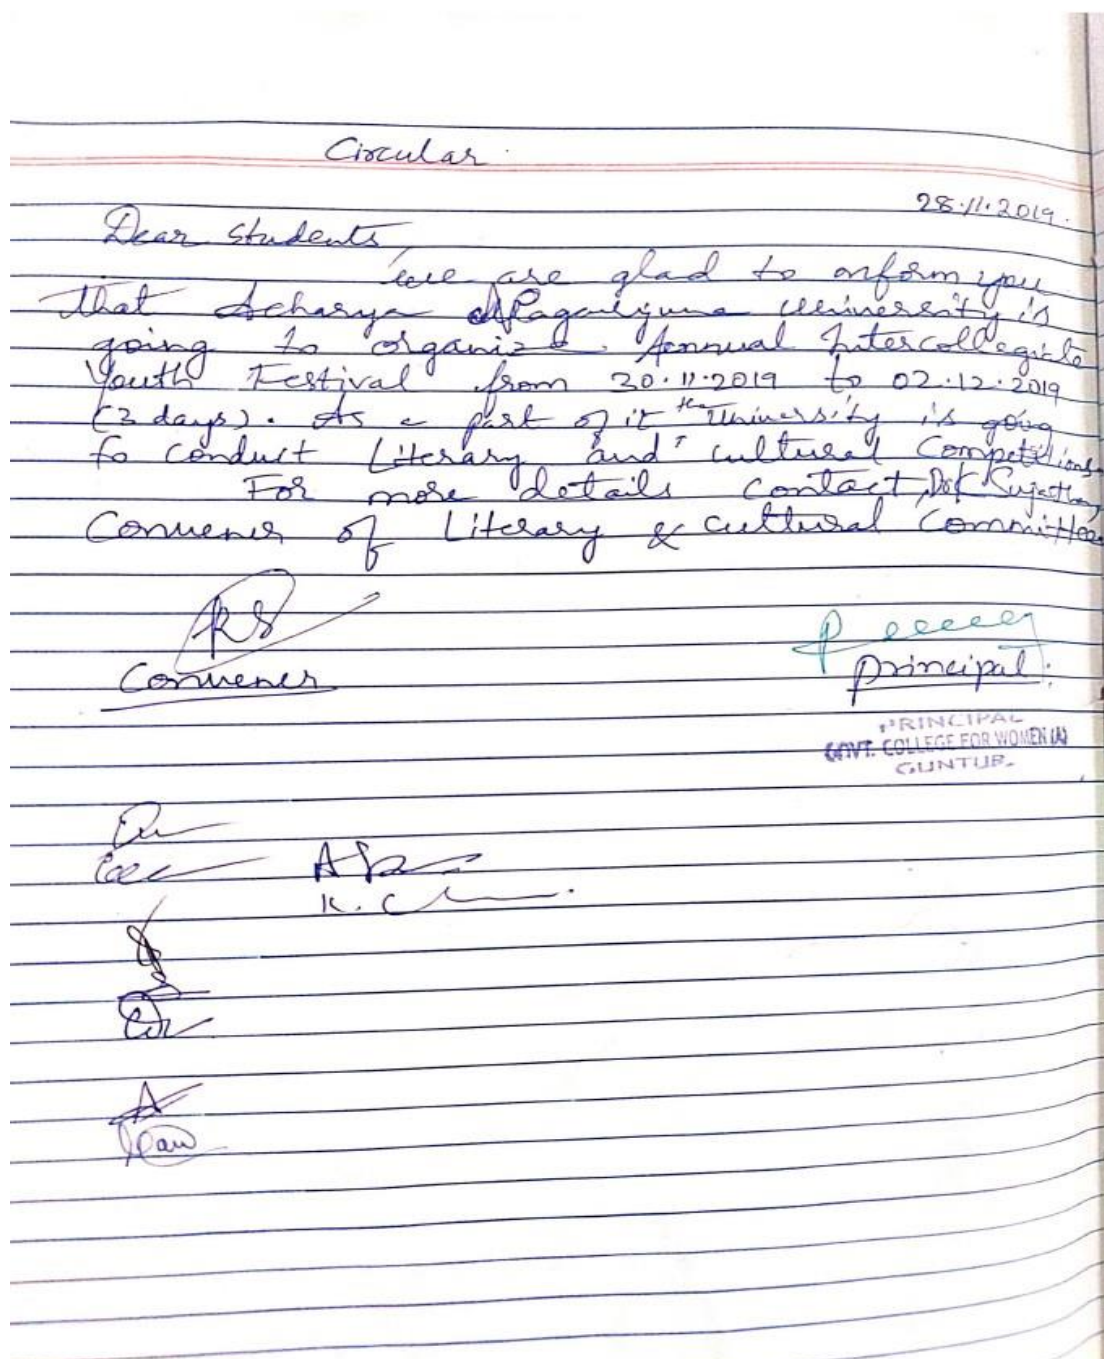 Circular
28.11.2019.
Dear Students,
We are glad to inform you
that Acharya Nagarjuna University is
going to organize Annual Intercollegiate
Youth Festival from 30.11.2019 to 02.12.2019
(3 days). As a part of it the University is going
to conduct Literary and cultural Competitions.
For more details contact, Dr. K. Sujatha,
Convener of Literary & cultural Committee
KS
Convener
Principal.
PRINCIPAL
GOVT. COLLEGE FOR WOMEN (A)
GUNTUR.